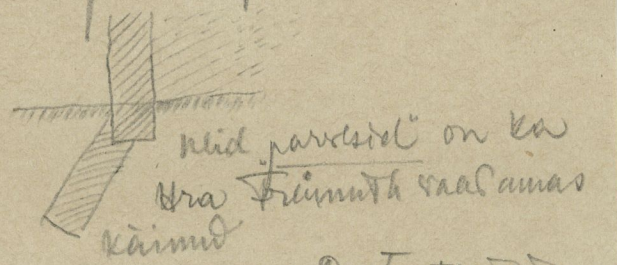 neid "parvesid" on ka
Hra Freimuth vaatamas
käinud